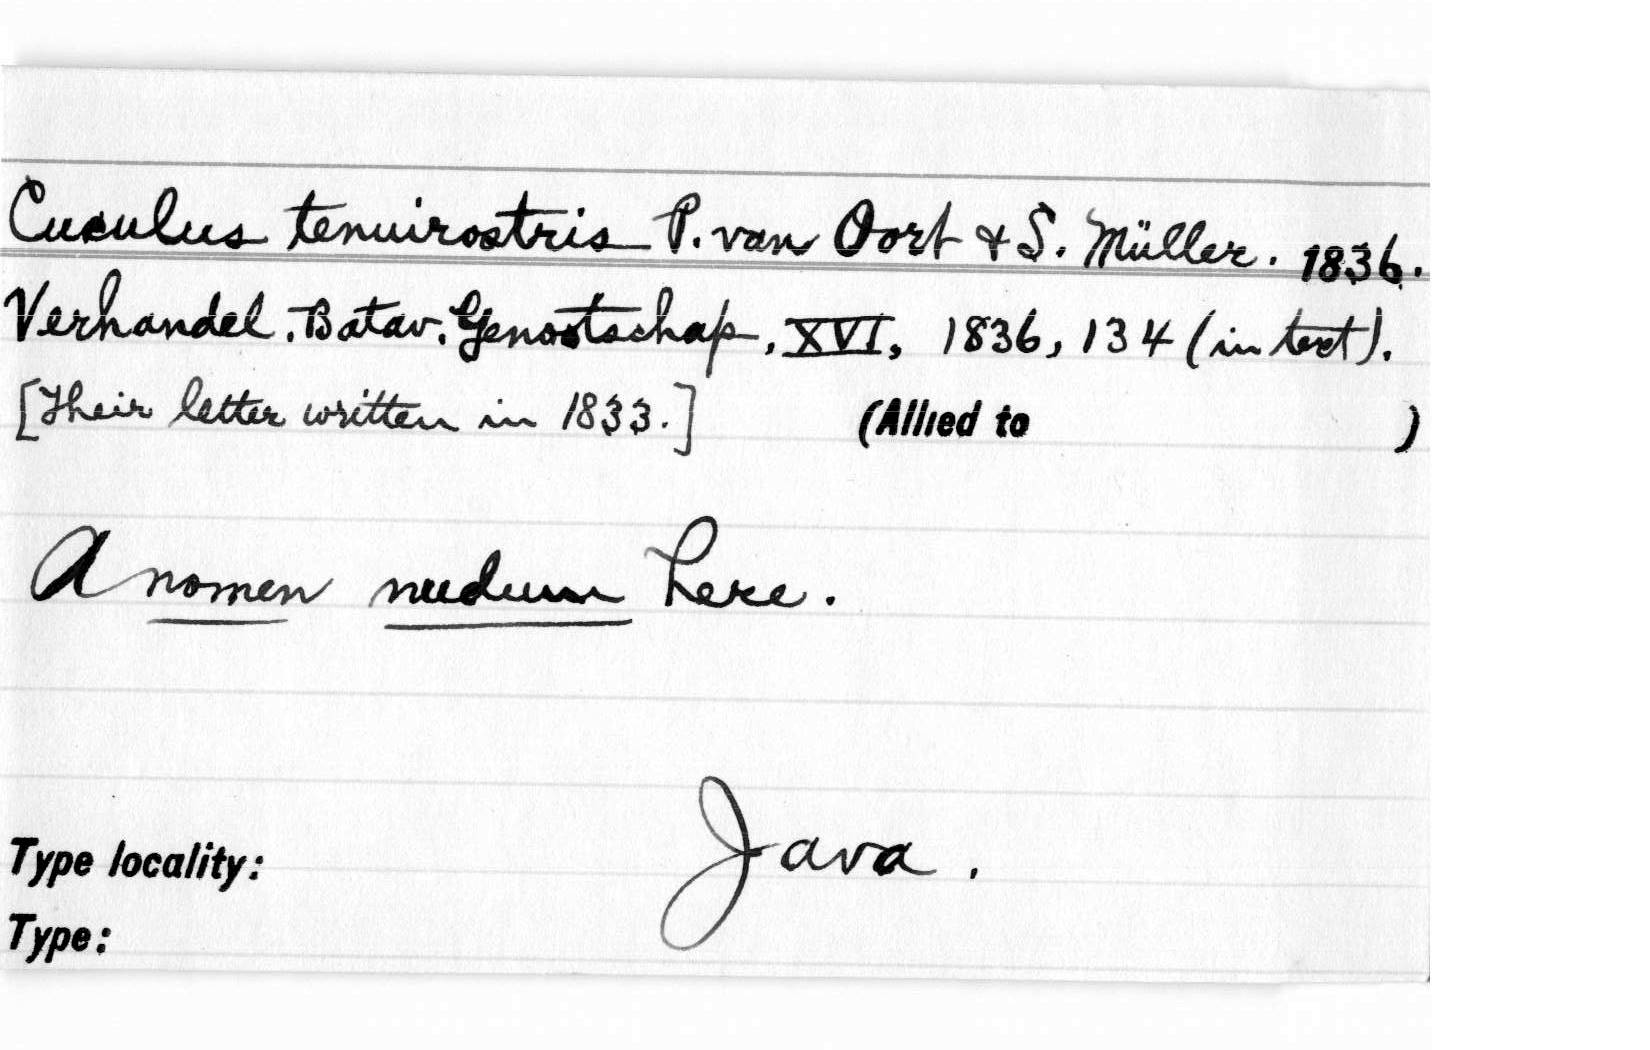 Cuculus tenuirostris P. van Oort & S. Müller. 1836.
Verhandel. Batav. Genootschap, XVI, 1836, 134 (in text).
[Their letter written in 1833.] (Allied to )
A nomen nudum here.
Type locality: Java.
Type: